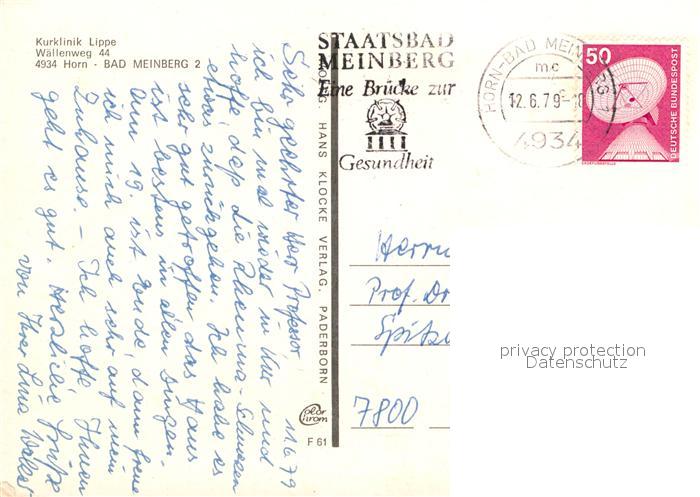 Kurklinik Lippe
Wällenweg 44
4934 Horn - BAD MEINBERG 2
STAATSBAD
MEINBERG
Eine Brücke zur
Gesundheit
HORN-BAD MEIN
mc
12.6.79-18
4934
50
DEUTSCHE BUNDESPOST
ERDEFUNKSTELLE
HANS KLOCKE VERLAG, PADERBORN
color
chrom
F 61
11.6.79
Sehr geehrter Herr Professor,
ich bin mal wieder in Kur und
hoffe, daß die Rheuma-Schmerzen
etwas zurückgehen. Ich habe es
sehr gut getroffen, das Haus
ist bestens in allen Dingen.
Am 19. ist Ende, dann freue
ich mich auch sehr auf mein
Zuhause. – Ich hoffe Ihnen
geht es gut. Herzliche Grüße
von Ihrer Lina
Herrn
Prof. Dr
Spitz
7800
privacy protection
Datenschutz